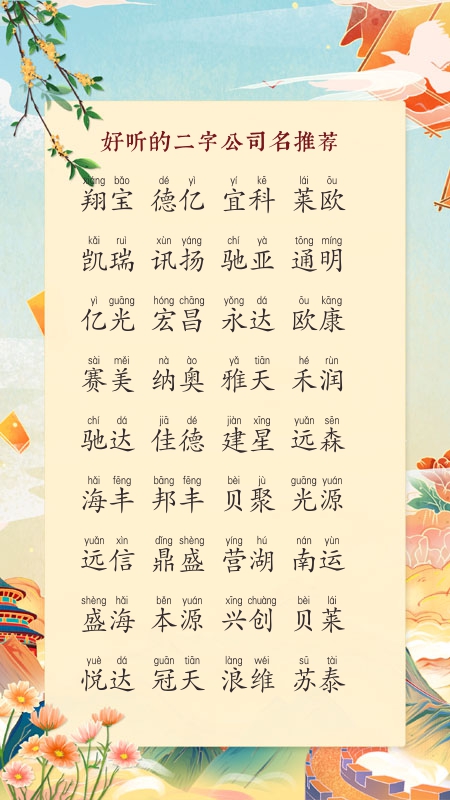 好听的二字公司名推荐
xiáng bǎo dé yì yí kē lái ōu
翔宝 德亿 宜科 莱欧
kǎi ruì xùn yáng chí yà tōng míng
凯瑞 讯扬 驰亚 通明
yì guāng hóng chāng yǒng dá ōu kāng
亿光 宏昌 永达 欧康
sài měi nà ào yǎ tiān hé rùn
赛美 纳奥 雅天 禾润
chí dá jiā dé jiàn xīng yuǎn sēn
驰达 佳德 建星 远森
hǎi fēng bāng fēng bèi jù guāng yuán
海丰 邦丰 贝聚 光源
yuǎn xìn dǐng shèng yíng hú nán yùn
远信 鼎盛 营湖 南运
shèng hǎi běn yuán xīng chuàng bèi lái
盛海 本源 兴创 贝莱
yuè dá guān tiān làng wéi sū tài
悦达 冠天 浪维 苏泰